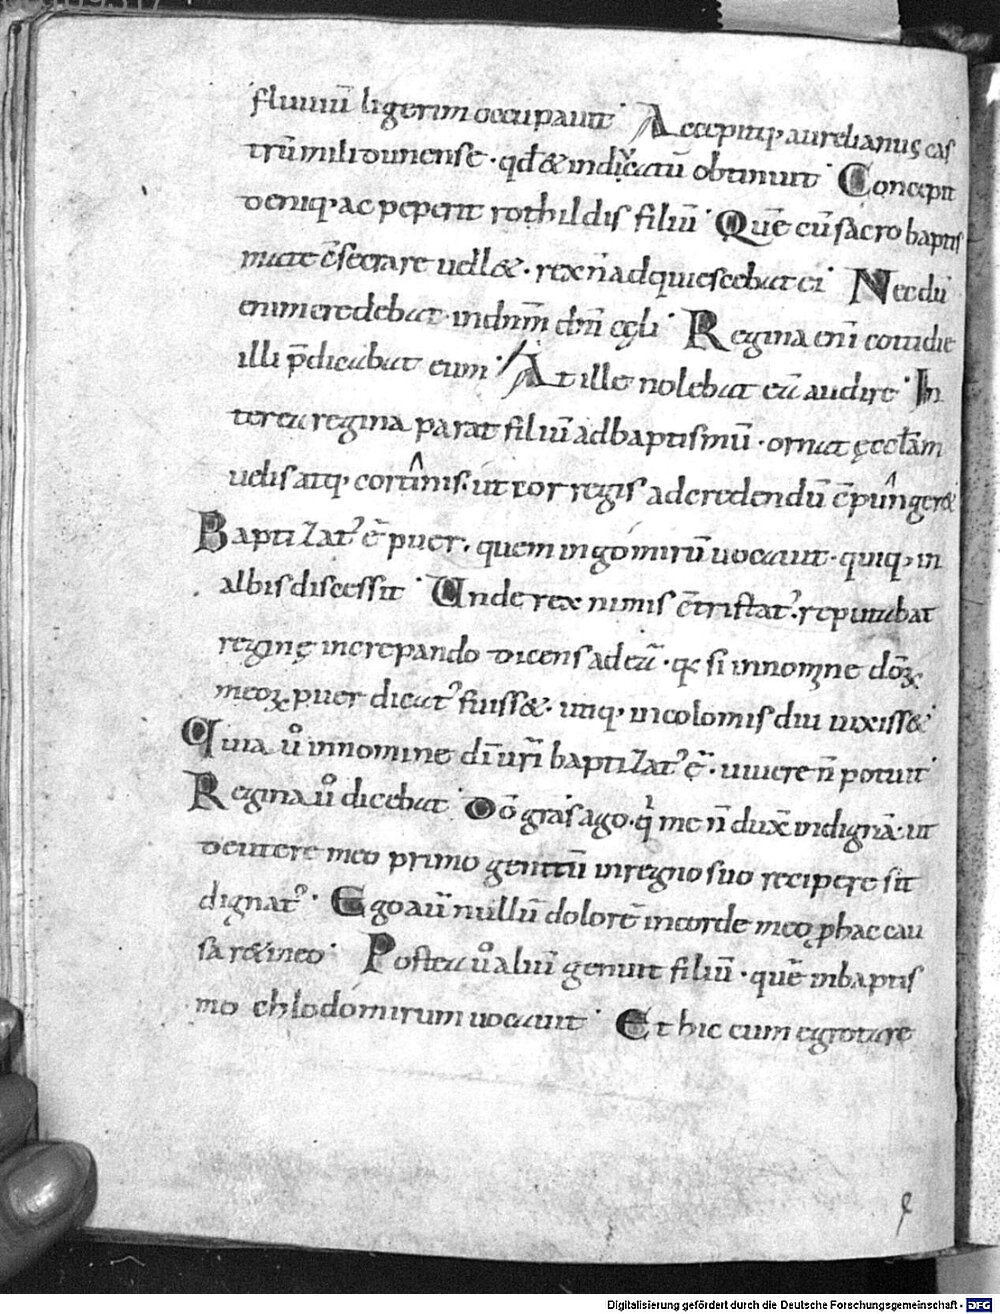 fluuiū ligerim occupauit. Accepitq; aurelianus cas
trū milidunense. qđ & inducatū obtinuit. Concepit
deniq; ac peperit rothildis filiū. Quē cū sacro baptis
mate c̄secrare uell&. rex n̄ adquiescebat ei. Necdū
enim credebat indn̄m dm̄ cęli. Regina eni cottidie
illi p̄dicabat eum. At ille nolebat eā audire. In
terea regina parat filiū ad baptismū. ornat ęccłam
uelis atq; cortinis. ut cor regis ad credendū c̄punger&
Baptizat' ē puer. quem ingomirū uocauit. quiq; in
albis discessit. Unde rex nimis c̄tristat'. reputabat
reginę increpando dicens ad eā. q; si innomine dōꝝ
meoꝝ puer dicat' fuiss&. utiq; incolomis diu uixiss&
Quia u͛o innomine dī ur̄i baptizat' ē. uiuere n̄ potuit.
Regina u͛o dicebat. Dō grās ago. q̇ me n̄ dux̄ indignā. ut
de utere meo primo genitū inregno suo recipere sit
dignat'. Ego aū nullū dolorē incorde meo p hac cau
sa retineo. Postea u͛o aliū genuit filiū. quē inbaptis
mo chlodomirum uocauit. Et hic cum egrotare
Digitalisierung gefördert durch die Deutsche Forschungsgemeinschaft - DFG